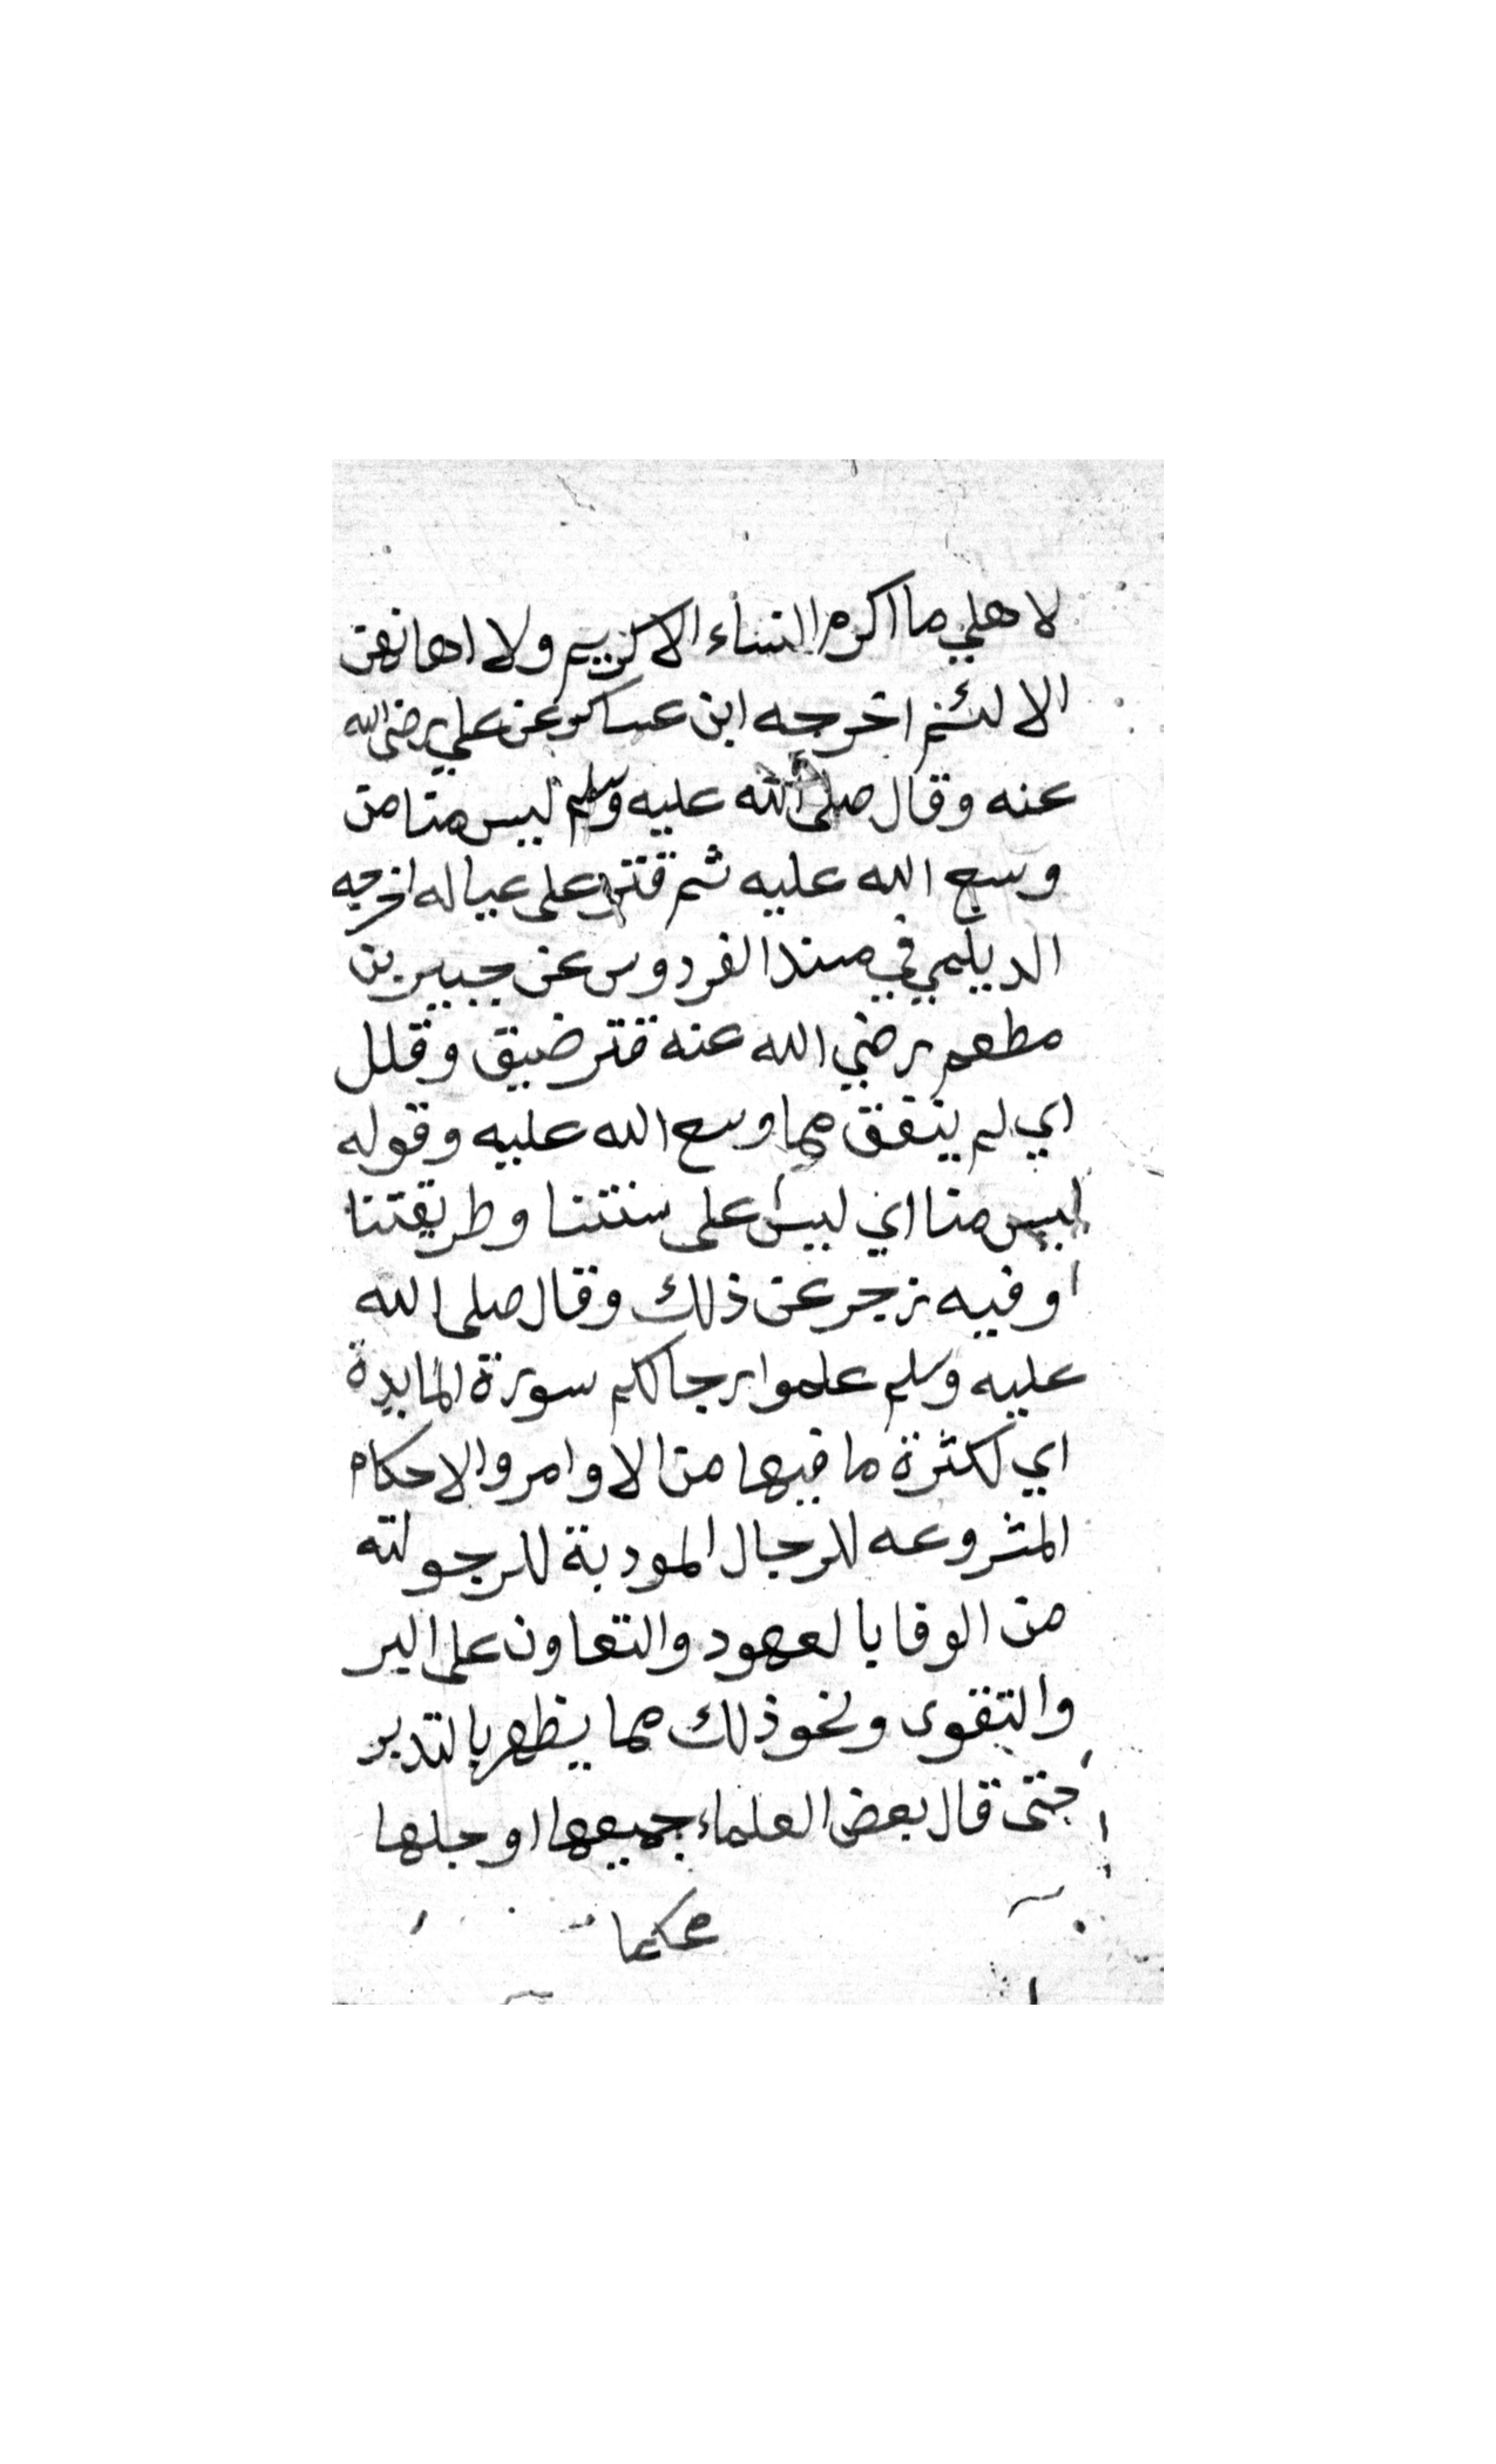 لاهلي ما اكرم النساء الا كريم ولا اهانهن
الا لئيم اخرجه ابن عساكر عن علي رضي الله
عنه وقال صلى الله عليه وسلم ليس منا من
وسع الله عليه ثم قتر على عياله اخرجه
الديلمي في مسند الفردوس عن جبير بن
مطعم رضي الله عنه قتر ضيق وقلل
اي لم ينفق مما وسع الله عليه وقوله
ليس منا اي ليس على سنتنا وطريقتنا
وفيه زجر عن ذلك وقال صلى الله
عليه وسلم علموا رجالكم سورة المايدة
اي لكثرة ما فيها من الاوامر والاحكام
المشروعه للرجال المودبة للرجولته
من الوفا بالعهود والتعاون على البر
والتقوى ونحو ذلك مما يظهر بالتدبر
حتى قال بعض العلماء جميعها او جلها
محكما